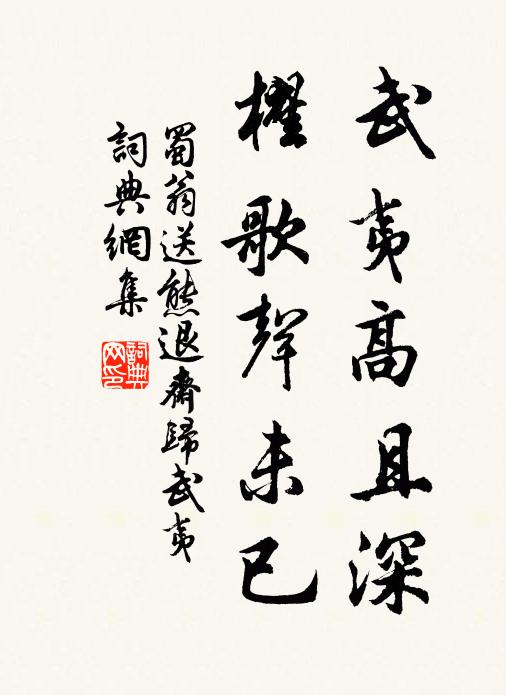 武夷高且深
櫂歌聲未已
蜀翁送熊退齋歸武夷
詞典網集
詞典網印